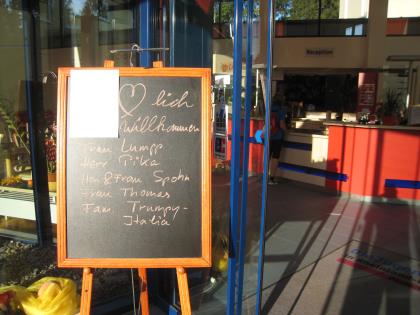 Reception
♡ lich
Willkommen
Frau Lumpp
Herr Pika
Herr & Frau Spohn
Frau Thomas
Fam. Trumpy-
Italia